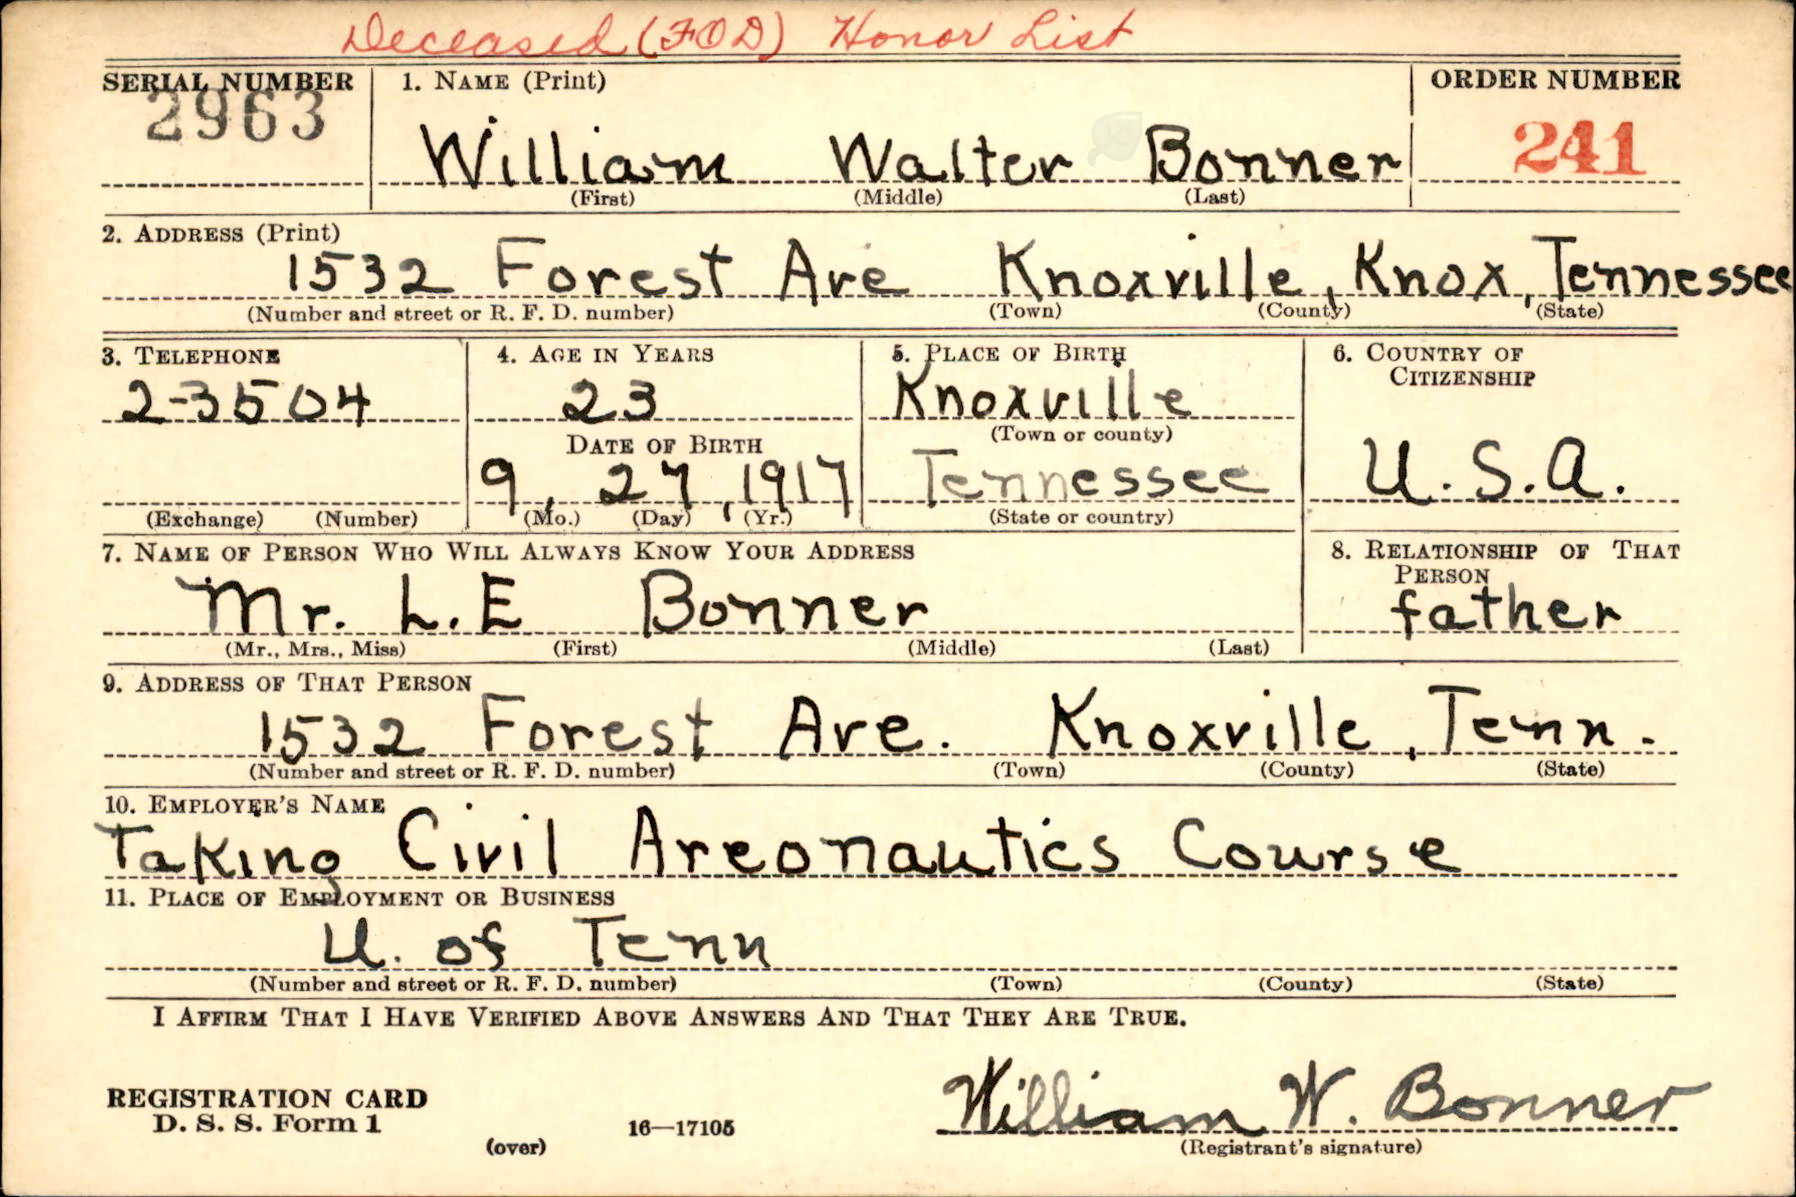 Deceased (FOD) Honor List
SERIAL NUMBER 1. NAME (Print) ORDER NUMBER
2963 William Walter Bonner 241
(First) (Middle) (Last)
2. ADDRESS (Print)
1532 Forest Ave Knoxville, Knox, Tennessee
(Number and street or R. F. D. number) (Town) (County) (State)
3. TELEPHONE 4. AGE IN YEARS 5. PLACE OF BIRTH 6. COUNTRY OF CITIZENSHIP
2-3504 23 Knoxville
DATE OF BIRTH (Town or county)
9, 27, 1917 Tennessee U.S.A.
(Exchange) (Number) (Mo.) (Day) (Yr.) (State or country)
7. NAME OF PERSON WHO WILL ALWAYS KNOW YOUR ADDRESS 8. RELATIONSHIP OF THAT PERSON
Mr. L.E Bonner father
(Mr., Mrs., Miss) (First) (Middle) (Last)
9. ADDRESS OF THAT PERSON
1532 Forest Ave. Knoxville, Tenn.
(Number and street or R. F. D. number) (Town) (County) (State)
10. EMPLOYER'S NAME
Taking Civil Areonautics Course
11. PLACE OF EMPLOYMENT OR BUSINESS
U. of Tenn
(Number and street or R. F. D. number) (Town) (County) (State)
I AFFIRM THAT I HAVE VERIFIED ABOVE ANSWERS AND THAT THEY ARE TRUE.
REGISTRATION CARD
D. S. S. Form 1 16—17105 William W. Bonner
(over) (Registrant's signature)